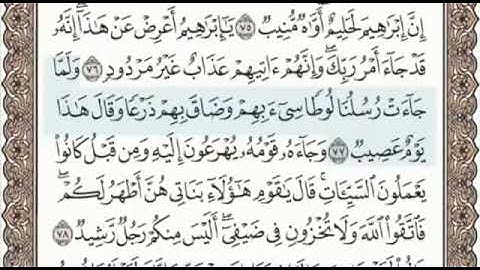 إِنَّ إِبْرَٰهِيمَ لَحَلِيمٌ أَوَّٰهٌ مُّنِيبٌ ٧٥ يَٰٓإِبْرَٰهِيمُ أَعْرِضْ عَنْ هَٰذَآ إِنَّهُۥ
قَدْ جَآءَ أَمْرُ رَبِّكَ وَإِنَّهُمْ ءَاتِيهِمْ عَذَابٌ غَيْرُ مَرْدُودٍ ٧٦ وَلَمَّا
جَآءَتْ رُسُلُنَا لُوطًا سِىٓءَ بِهِمْ وَضَاقَ بِهِمْ ذَرْعًا وَقَالَ هَٰذَا
يَوْمٌ عَصِيبٌ ٧٧ وَجَآءَهُۥ قَوْمُهُۥ يُهْرَعُونَ إِلَيْهِ وَمِن قَبْلُ كَانُوا۟
يَعْمَلُونَ ٱلسَّيِّـَٔاتِ قَالَ يَٰقَوْمِ هَٰٓؤُلَآءِ بَنَاتِى هُنَّ أَطْهَرُ لَكُمْ
فَٱتَّقُوا۟ ٱللَّهَ وَلَا تُخْزُونِ فِى ضَيْفِىٓ أَلَيْسَ مِنكُمْ رَجُلٌ رَّشِيدٌ ٧٨